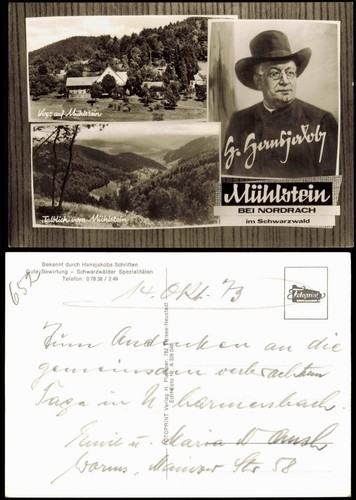 Vogt auf Mühlstein
H. Hansjakob
Talblick vom Mühlstein
Mühlstein
BEI NORDRACH
im Schwarzwald
Bekannt durch Hansjakobs Schriften
Gute Bewirtung – Schwarzwälder Spezialitäten
Telefon: 0 78 38 / 2 49
652
14. Okt. 73
Fotoprint
FOTOPRINT Verlag H.
Zum Andenken an die
gemeinsam verbrachten
Tage in U'harmersbach.
Emil u. Maria
Worms, Mainzer Str 58